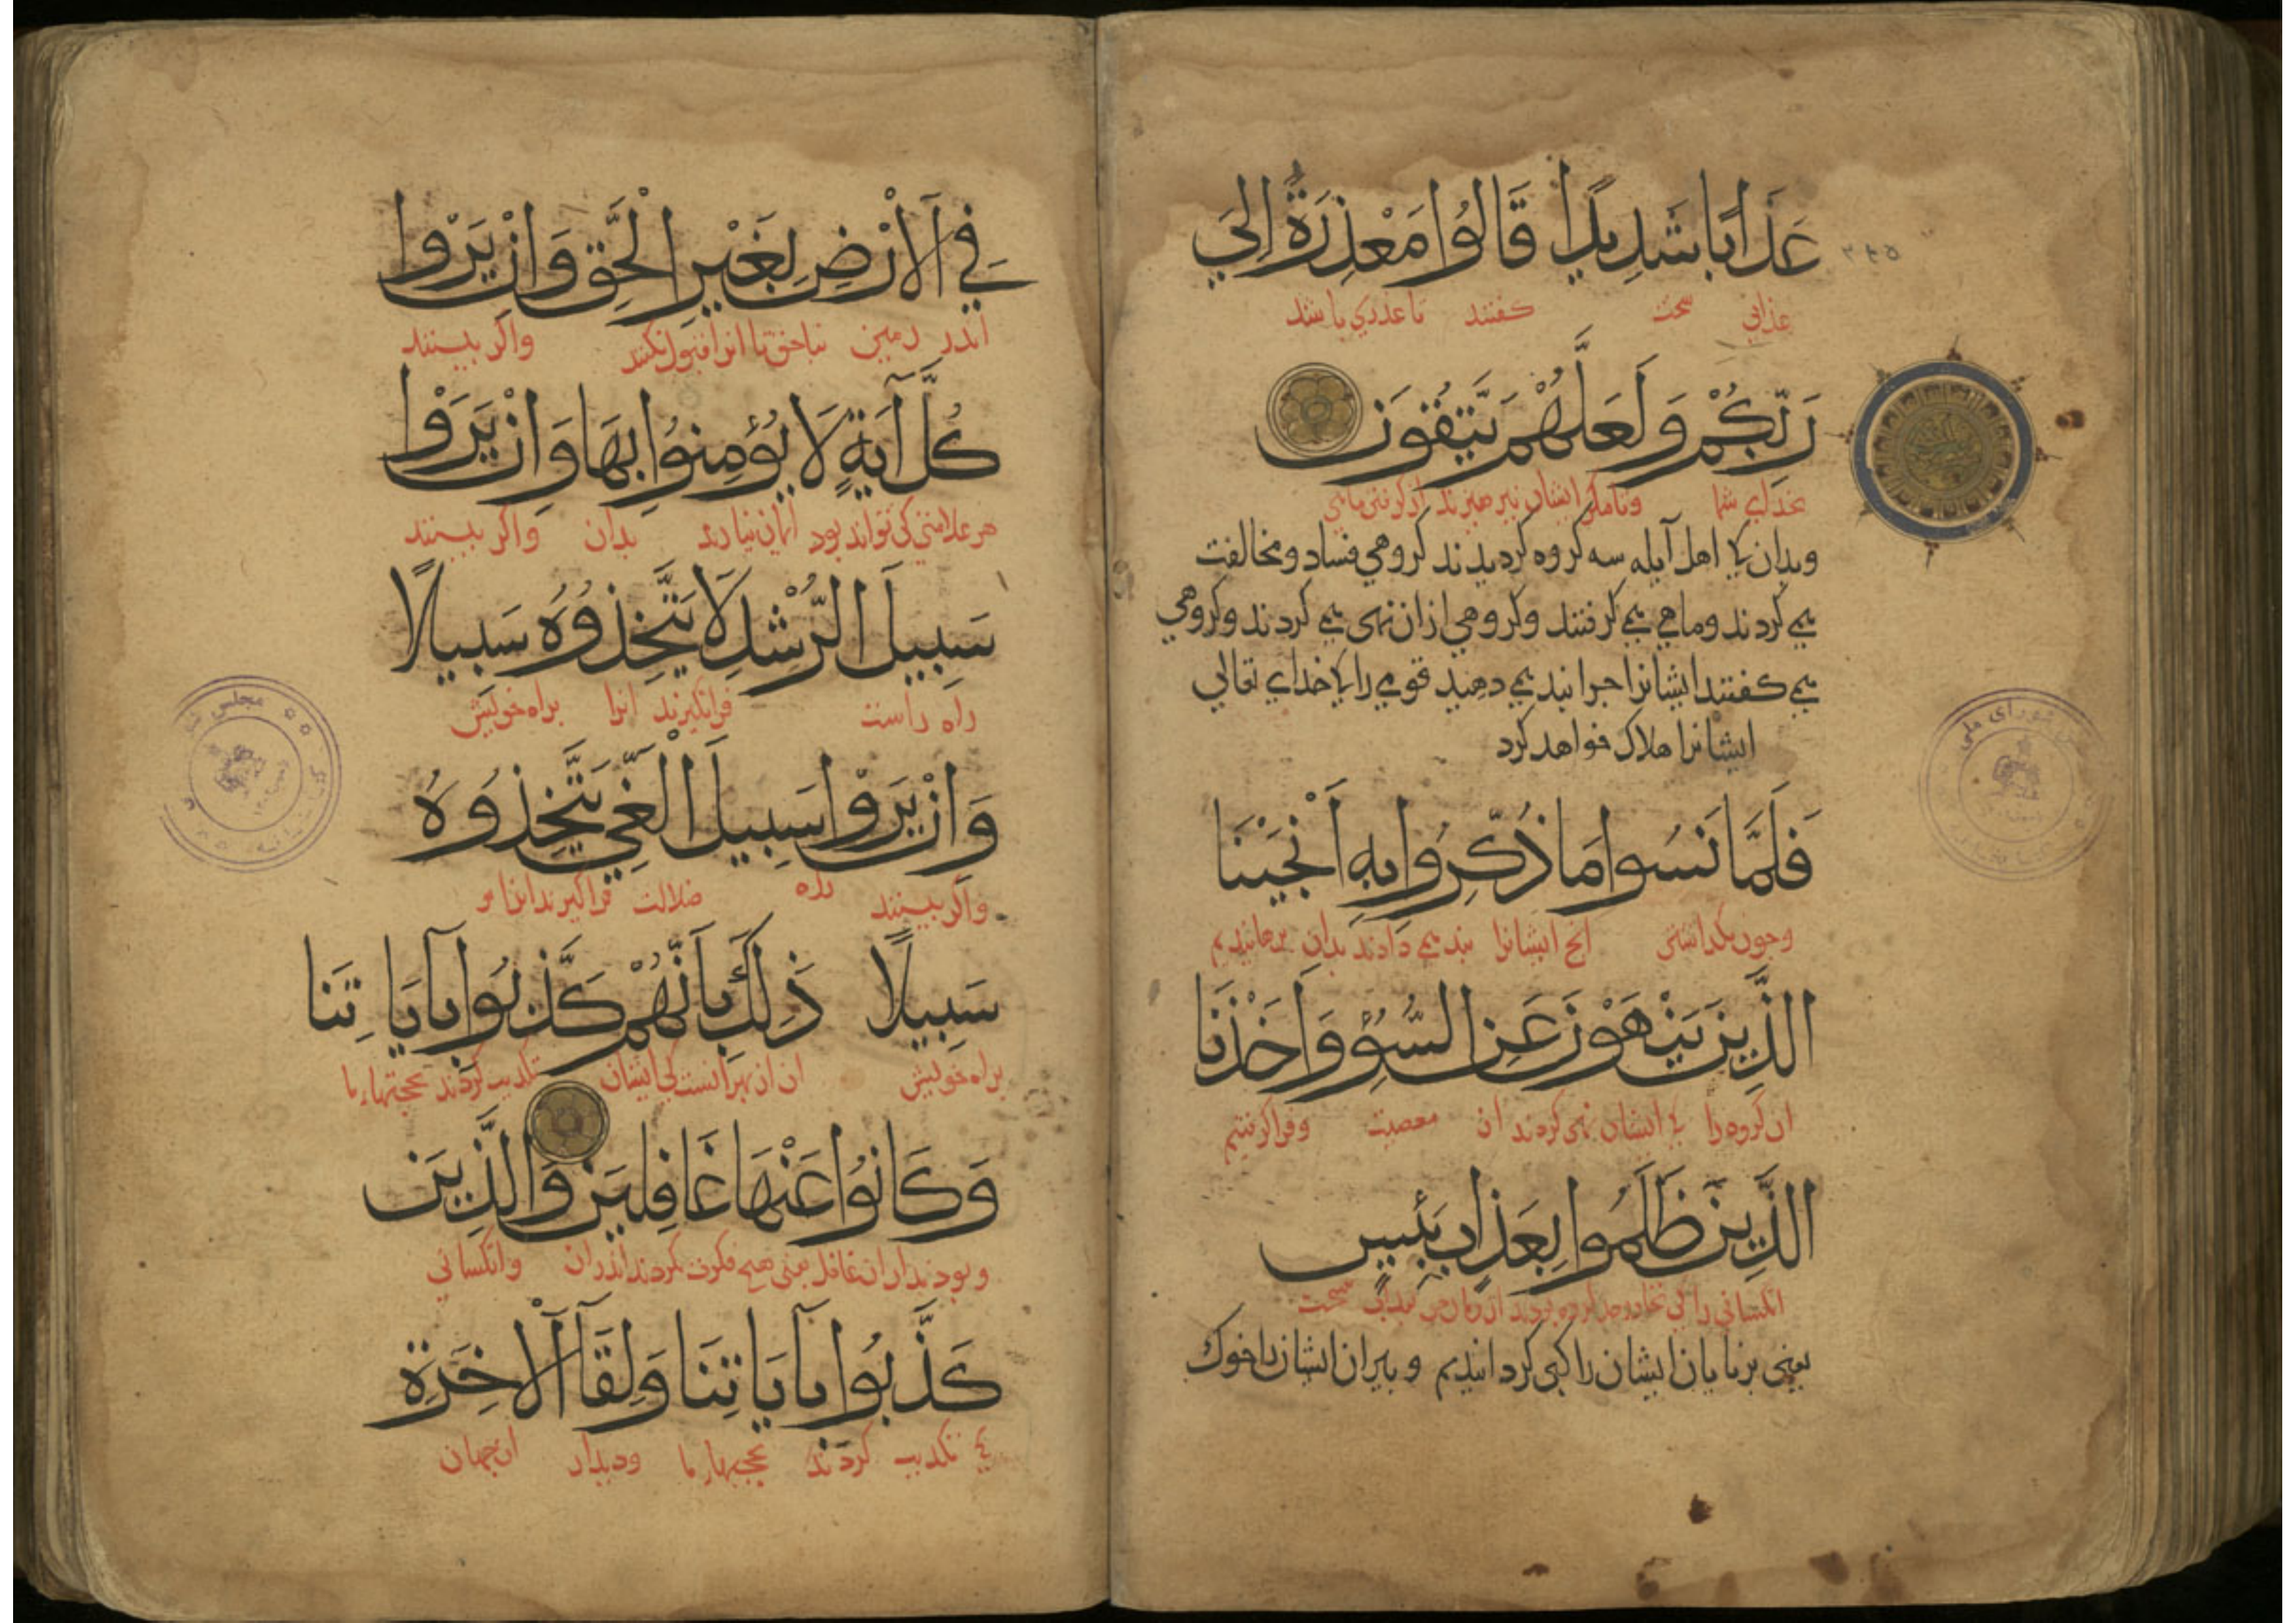 عَذَابًا شَدِيدًا قَالُوا مَعْذِرَةً إِلَى
عذابی سخت گفتند تا عذری باشد
رَبِّكُمْ وَلَعَلَّهُمْ يَتَّقُونَ
بخدای شما وتامکر ایشان بپرهیزند از کرفتن ماهی
وبدان کی اهل آیله سه کروه کردیدند کروهی فساد ومخالفت
می کردند وماهی می کرفتند وکروهی ازان نهی می کردند وکروهی
می کفتند ایشانرا جرا بند می دهید قومی را کی خدای تعالی
ایشانرا هلاک خواهد کرد
فَلَمَّا نَسُوا مَا ذُكِّرُوا بِهِ أَنْجَيْنَا
وجون بکذاشتند انج ایشانرا بند می دادند بدان برهانیدیم
الَّذِينَ يَنْهَوْنَ عَنِ السُّوءِ وَأَخَذْنَا
ان کروه را کی ایشان نهی کردند از معصیت وفرا کرفتیم
الَّذِينَ ظَلَمُوا بِعَذَابٍ بَئِيسٍ
انکسانی را کی سخت
یعنی برنایان ایشان را کبی کردانیدیم وپیران ایشان را خوک
فِي الْأَرْضِ بِغَيْرِ الْحَقِّ وَإِنْ يَرَوْا
اندر زمین بناحق تا انرا قبول نکنند واکر ببینند
كُلَّ آيَةٍ لَا يُؤْمِنُوا بِهَا وَإِنْ يَرَوْا
هر علامتی کی تواند بود ایمان نیارند بدان واکر ببینند
سَبِيلَ الرُّشْدِ لَا يَتَّخِذُوهُ سَبِيلًا
راه راست فرانکیرند انرا براه خویش
وَإِنْ يَرَوْا سَبِيلَ الْغَيِّ يَتَّخِذُوهُ
واکر ببینند راه ضلالت فراکیرند انرا
سَبِيلًا ذَلِكَ بِأَنَّهُمْ كَذَّبُوا بِآيَاتِنَا
براه خویش ان از بهر انست کی ایشان تکذیب کردند بحجتهاء ما
وَكَانُوا عَنْهَا غَافِلِينَ وَالَّذِينَ
وبودند ازان غافل یعنی هیج فکرت نکردند اندران وانکسانی
كَذَّبُوا بِآيَاتِنَا وَلِقَاءِ الْآخِرَةِ
کی تکذیب کردند بحجتهاء ما ودیدار ان جهان